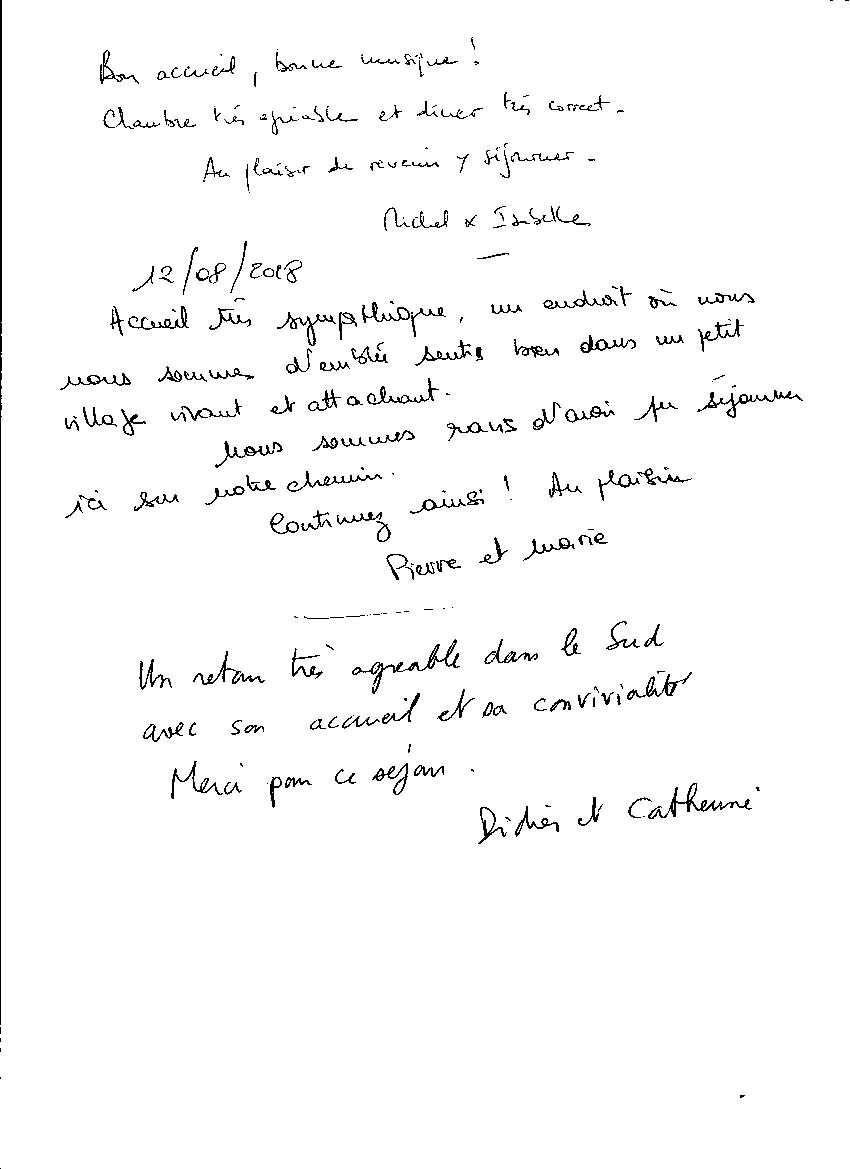 Bon accueil, bonne musique !
Chambre très agréable et dîner très correct.
Au plaisir de revenir y séjourner.
Michel & Isabelle
12/08/2018
Accueil très sympathique, un endroit où nous
nous sommes d'emblée sentis bien dans un petit
village vivant et attachant.
Nous sommes ravis d'avoir pu séjourner
ici sur notre chemin.
Continuez ainsi ! Au plaisir
Pierre et Marie
Un retour très agréable dans le Sud
avec son accueil et sa convivialité
Merci pour ce séjour.
Didier et Catherine